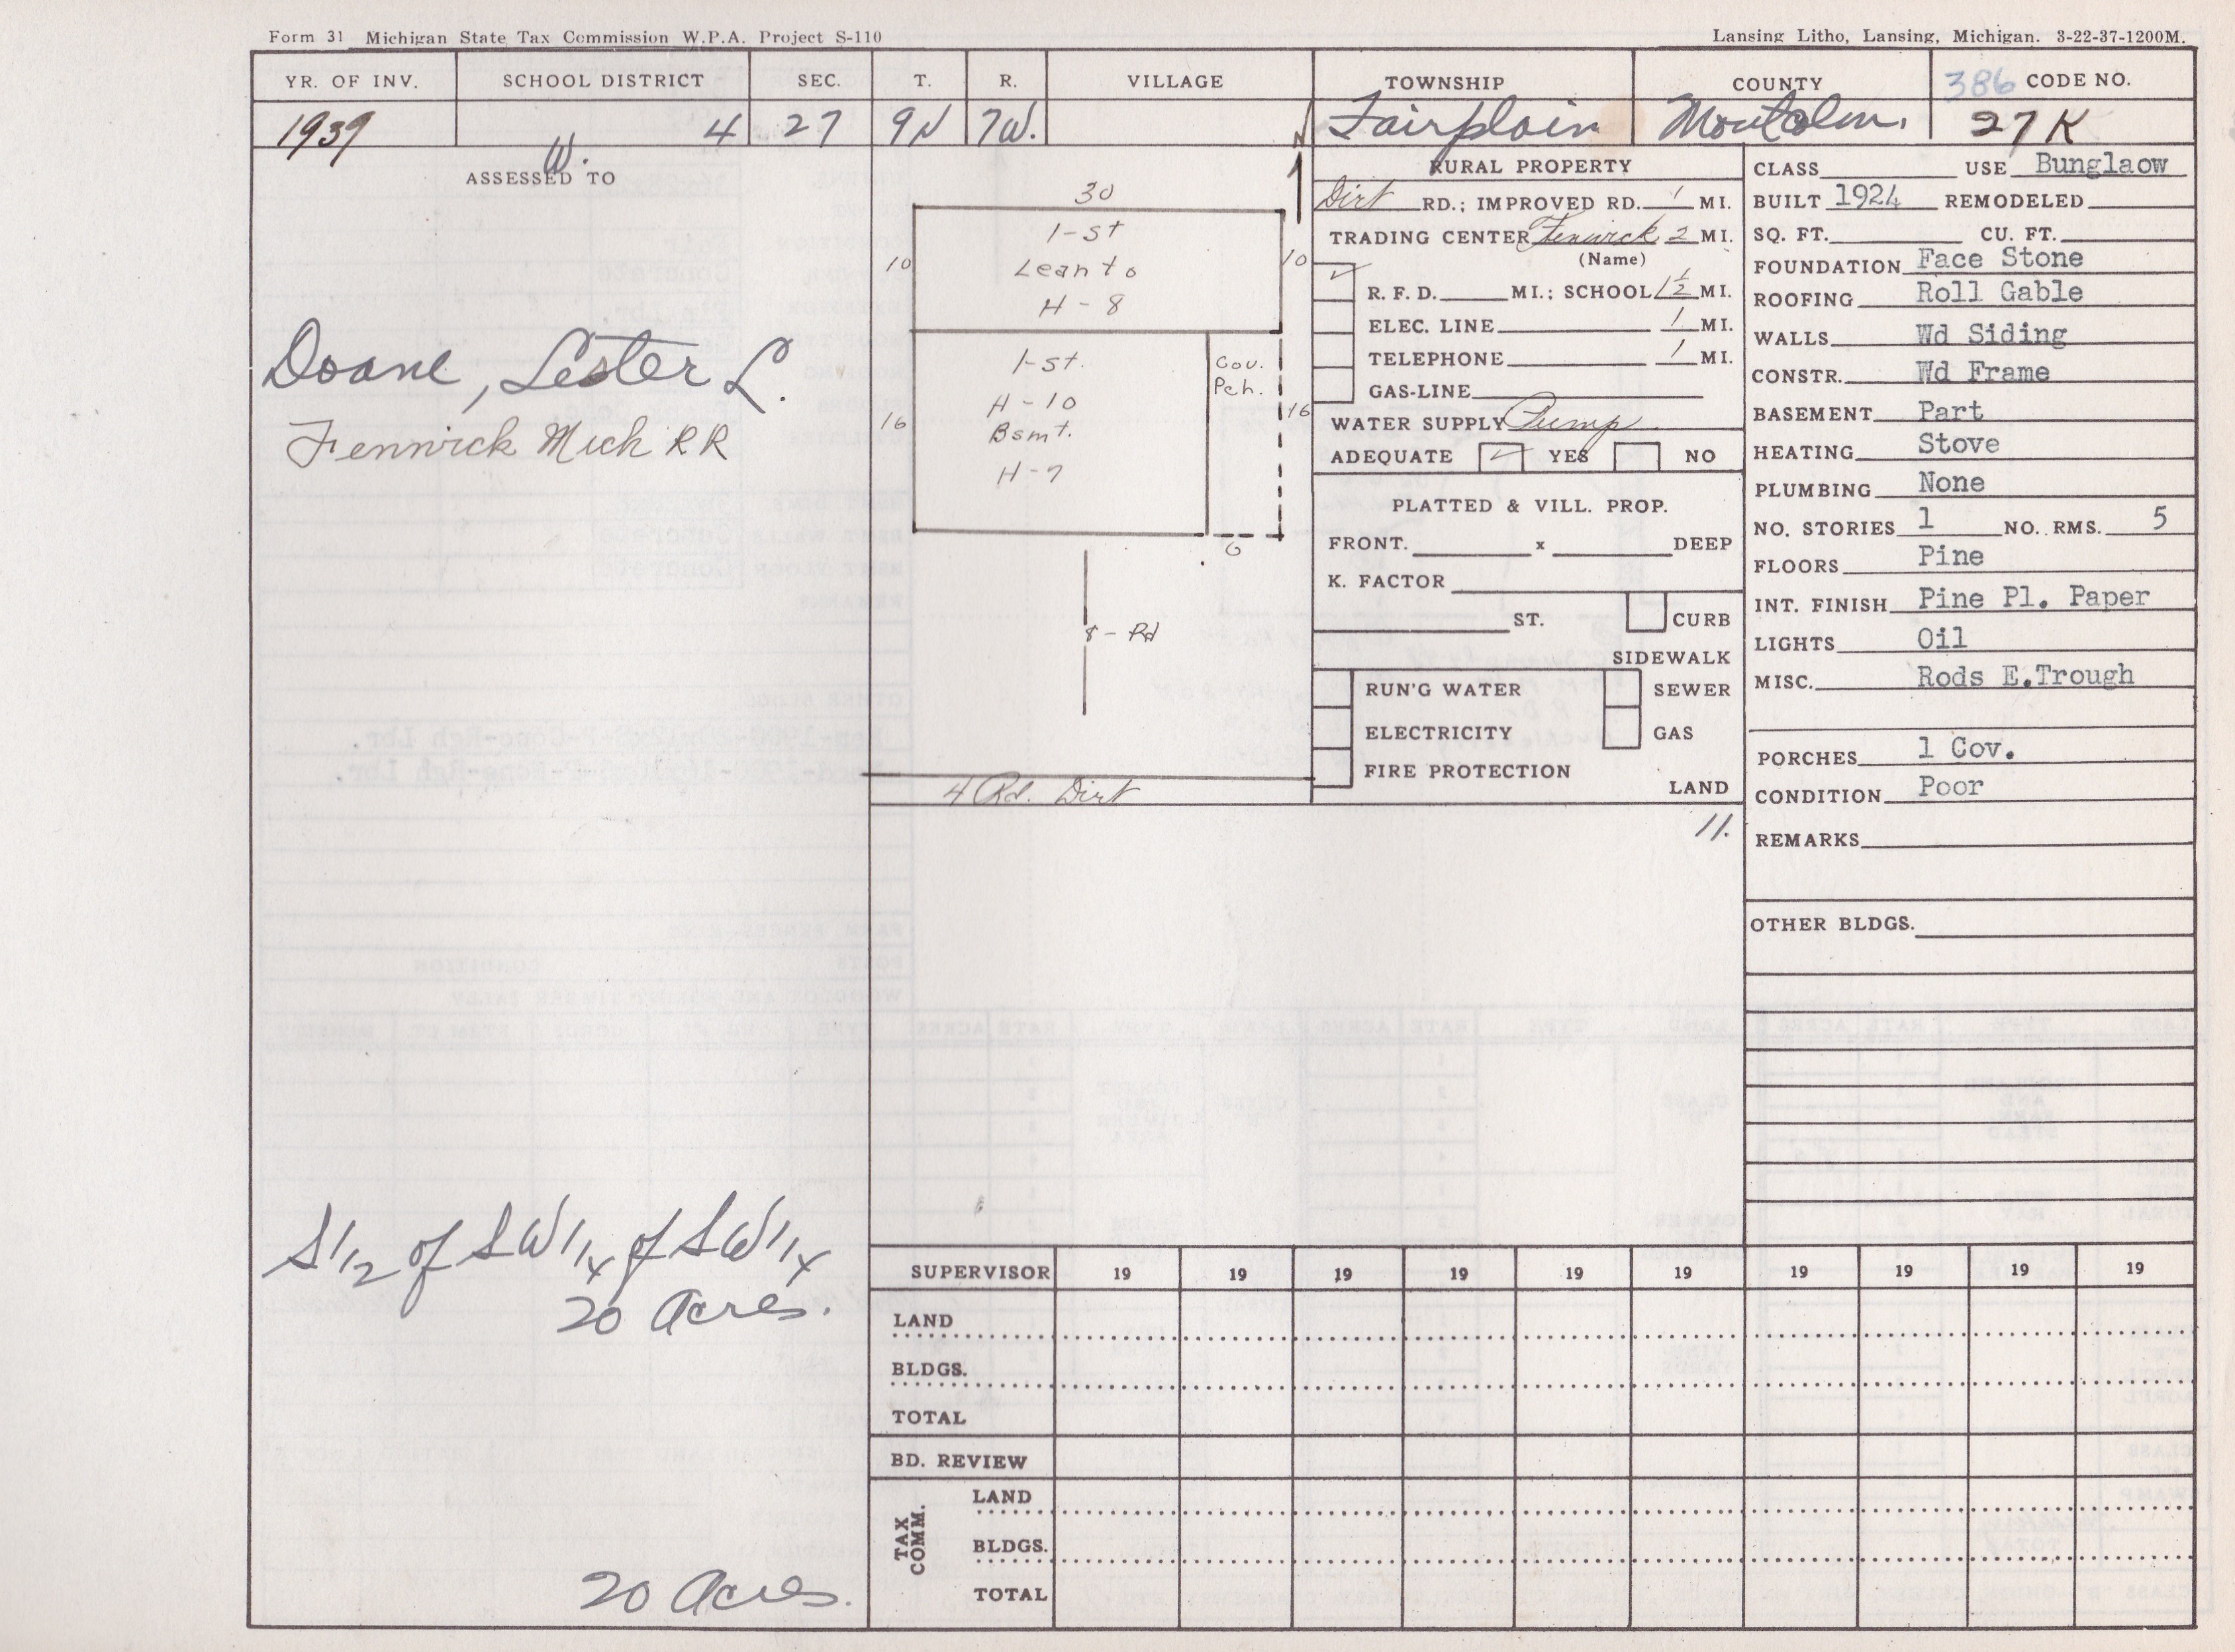 Form 31 Michigan State Tax Commission W.P.A. Project S-110
Lansing Litho, Lansing, Michigan. 3-22-37-1200M.
YR. OF INV. SCHOOL DISTRICT SEC. T. R. VILLAGE TOWNSHIP COUNTY 386 CODE NO.
1939 4 27 9N 7W. Fairplain Montcalm. 27 K
W.
ASSESSED TO
Doane, Lester L.
Fenwick Mich RR
S 1/2 of SW 1/4 of SW 1/4
20 Acres.
20 Acres.
N
30
1-st
10 Lean to 10
H - 8
1-st.
Cov.
Pch.
H - 10
16 Bsmt. 16
H - 7
6
8 - Rd
4 Rd. Dirt
RURAL PROPERTY
Dirt RD.; IMPROVED RD. 1 MI.
TRADING CENTER Fenwick 2 MI.
(Name)
R. F. D. MI.; SCHOOL 1 1/2 MI.
ELEC. LINE 1 MI.
TELEPHONE 1 MI.
GAS-LINE
WATER SUPPLY Pump
ADEQUATE YES NO
PLATTED & VILL. PROP.
FRONT. x DEEP
K. FACTOR
ST. CURB
SIDEWALK
RUN'G WATER SEWER
ELECTRICITY GAS
FIRE PROTECTION
LAND
11.
CLASS USE Bunglaow
BUILT 1924 REMODELED
SQ. FT. CU. FT.
FOUNDATION Face Stone
ROOFING Roll Gable
WALLS Wd Siding
CONSTR. Wd Frame
BASEMENT Part
HEATING Stove
PLUMBING None
NO. STORIES 1 NO. RMS. 5
FLOORS Pine
INT. FINISH Pine Pl. Paper
LIGHTS Oil
MISC. Rods E.Trough
PORCHES 1 Cov.
CONDITION Poor
REMARKS
OTHER BLDGS.
SUPERVISOR 19 19 19 19 19 19 19 19 19 19
LAND
BLDGS.
TOTAL
BD. REVIEW
TAX COMM.
LAND
BLDGS.
TOTAL